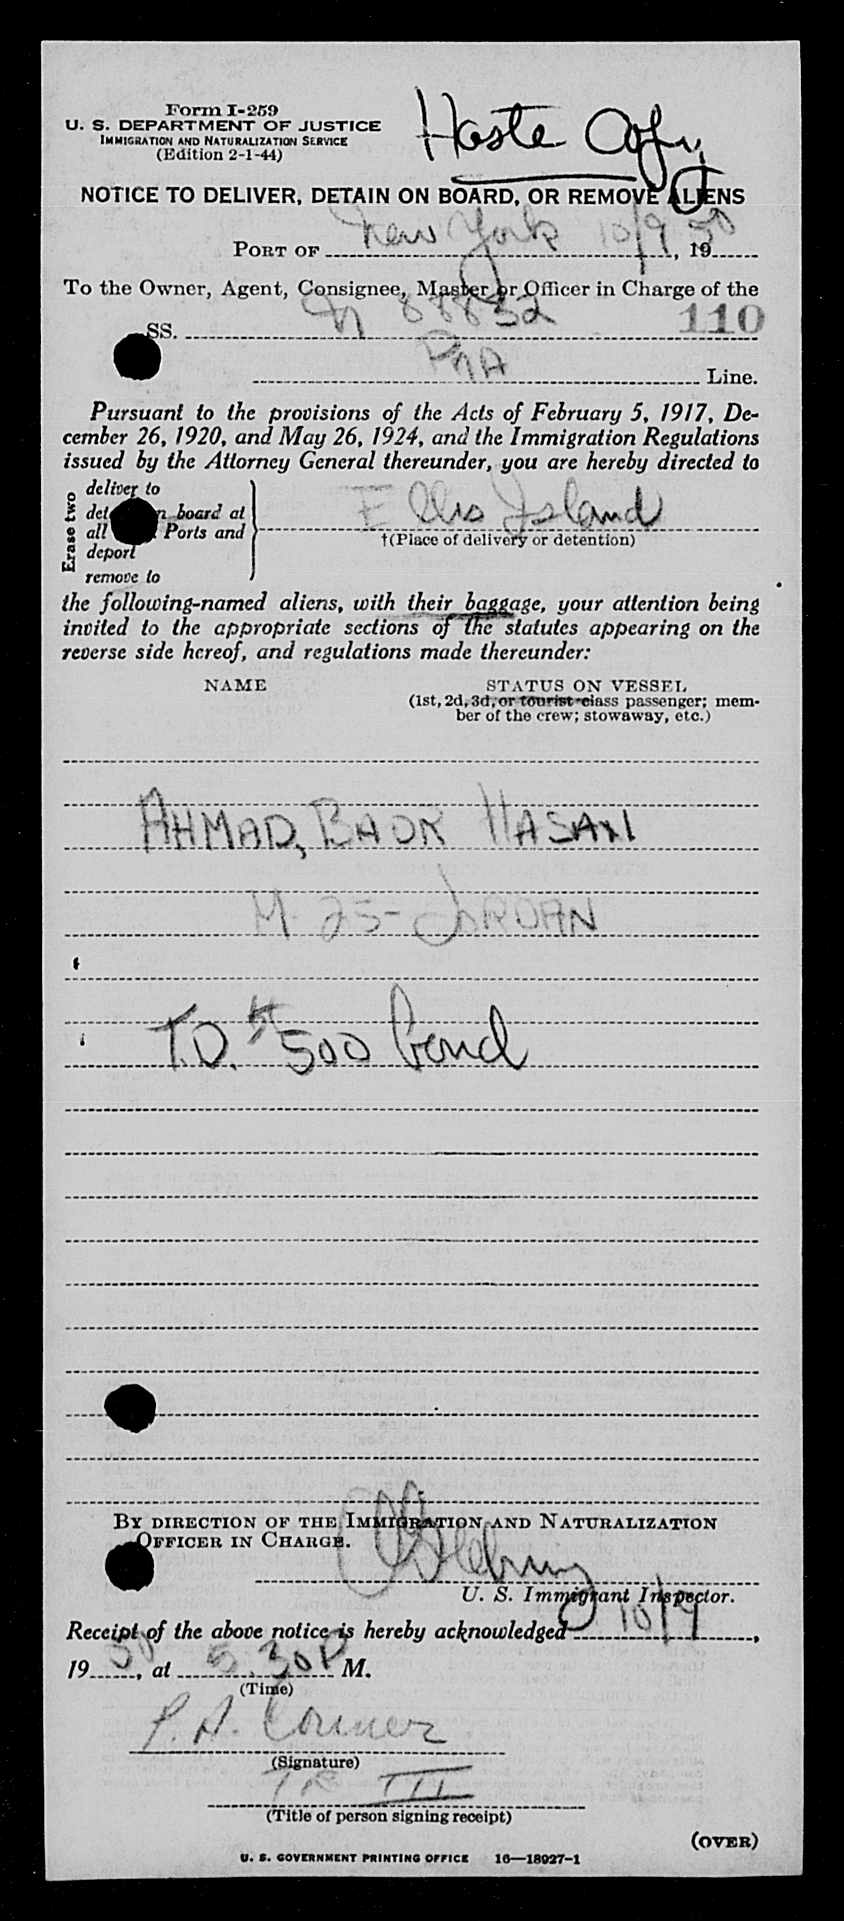 Form I-259
U. S. DEPARTMENT OF JUSTICE
IMMIGRATION AND NATURALIZATION SERVICE
(Edition 2-1-44)
Haste Copy
NOTICE TO DELIVER, DETAIN ON BOARD, OR REMOVE ALIENS
PORT OF New York 10/9, 1950
To the Owner, Agent, Consignee, Master or Officer in Charge of the
SS. N 88832 110
PAA Line.
Pursuant to the provisions of the Acts of February 5, 1917, De-
cember 26, 1920, and May 26, 1924, and the Immigration Regulations
issued by the Attorney General thereunder, you are hereby directed to
Erase two
deliver to
board at
all Ports and
deport
remove to
Ellis Island
†(Place of delivery or detention)
the following-named aliens, with their baggage, your attention being
invited to the appropriate sections of the statutes appearing on the
reverse side hereof, and regulations made thereunder:
NAME
STATUS ON VESSEL
(1st, 2d, 3d, or tourist-class passenger; mem-
ber of the crew; stowaway, etc.)
AHMAD, BADR HASAN
M-25-JORDAN
T.D. $500 Bond
BY DIRECTION OF THE IMMIGRATION AND NATURALIZATION
OFFICER IN CHARGE.
U. S. Immigrant Inspector.
Receipt of the above notice is hereby acknowledged 10/9,
1950, at 5:30 P M.
(Time)
P. A. Conner
(Signature)
(Title of person signing receipt)
(OVER)
U. S. GOVERNMENT PRINTING OFFICE 16—18927-1